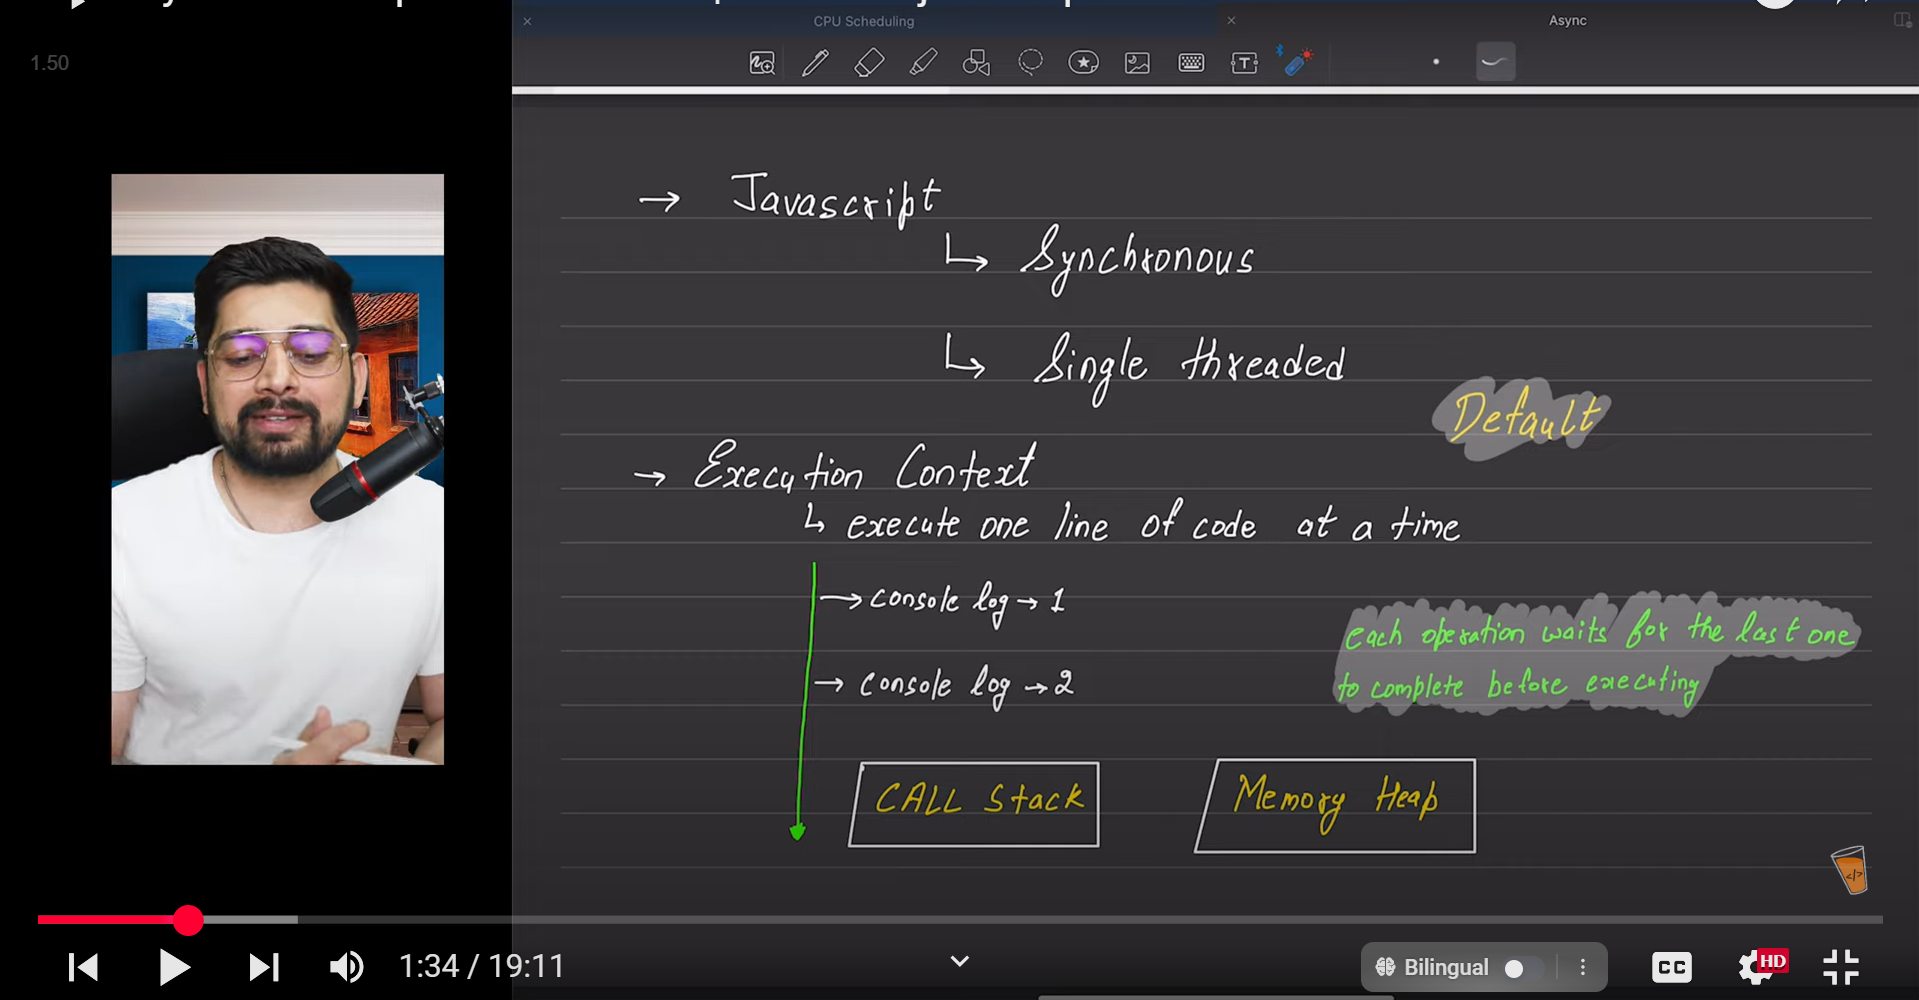 1.50
CPU Scheduling
Async
→ Javascript
↳ Synchronous
↳ Single threaded
Default
→ Execution Context
↳ execute one line of code at a time
→ console log → 1
→ console log → 2
each operation waits for the last one
to complete before executing
CALL Stack
Memory Heap
</>
1:34 / 19:11
Bilingual
CC
HD